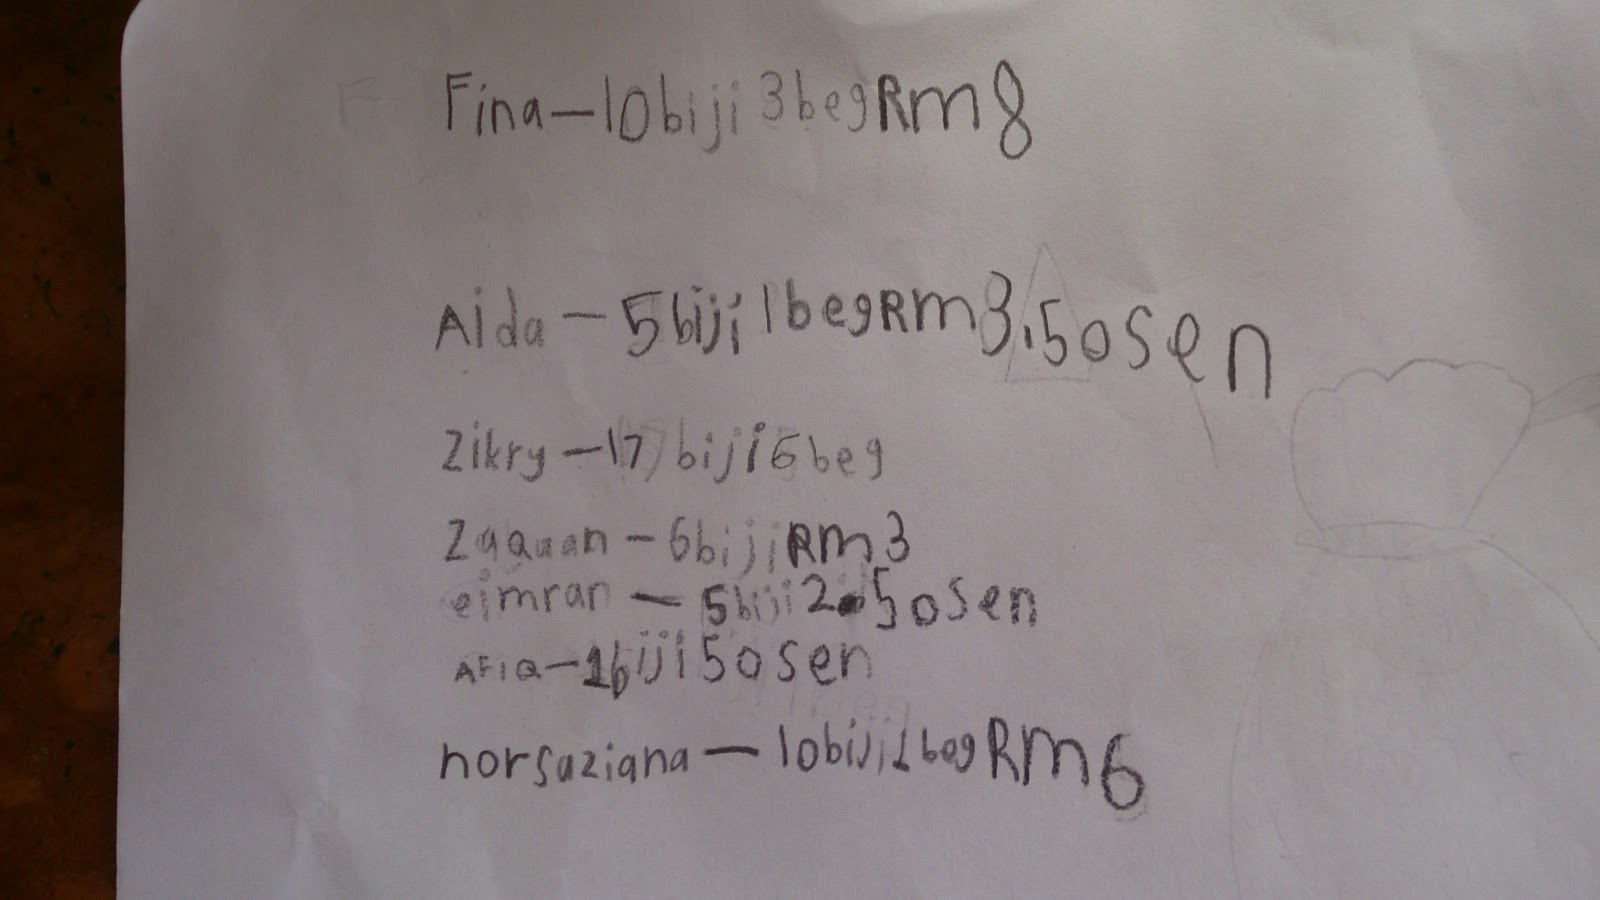 Fina — 10 biji 3 beg Rm 8
Aida — 5 biji 1 beg Rm 3.50 sen
Zikry — 17 biji 6 beg
Zaquan — 6 biji Rm 3
eimran — 5 biji 2.50 sen
AFIQ — 1 biji 50 sen
norsuziana — 10 biji 1 beg Rm 6